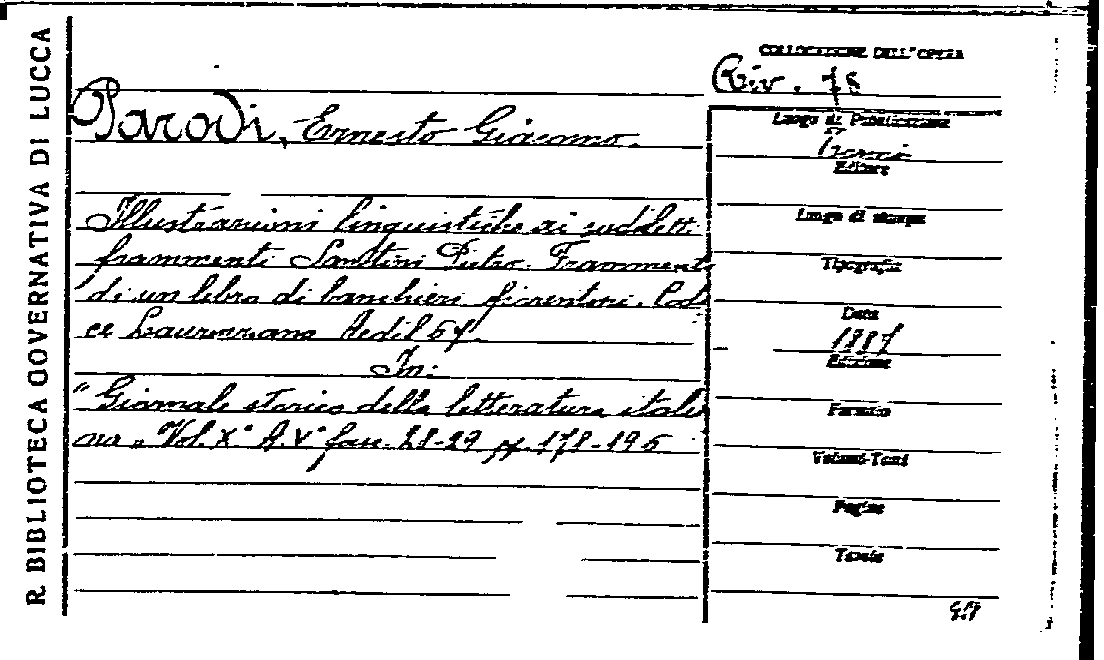 R. BIBLIOTECA GOVERNATIVA DI LUCCA
COLLOCAZIONE DELL'OPERA
Riv. 78
Parodi, Ernesto Giacomo.
Luogo di Pubblicazione
Editore
Illustrazioni linguistiche ai suddetti
Luogo di stampa
frammenti Santini Pietro. Frammenti
Tipografia
di un libro di banchieri fiorentini. Codi
Data
ce Laurenziano Aedil 67.
1887
Edizione
In:
"Giornale storico della letteratura italia
Formato
na" Vol. X° A. V° fasc. 28-29 pp. 178-196
Volumi-Tomi
Pagine
Tavole